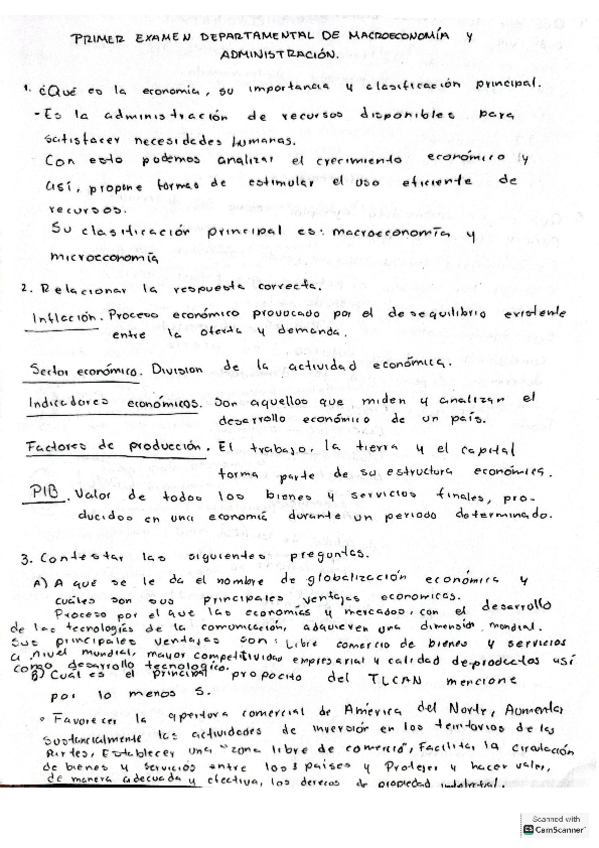 PRIMER EXAMEN DEPARTAMENTAL DE MACROECONOMÍA Y
ADMINISTRACIÓN.
1. ¿Qué es la economía, su importancia y clasificación principal.
- Es la administración de recursos disponibles para
satisfacer necesidades humanas.
Con esto podemos analizar el crecimiento económico y
así, propone formas de estimular el uso eficiente de
recursos.
Su clasificación principal es: macroeconomía y
microeconomía
2. Relacionar la respuesta correcta.
Inflación. Proceso económico provocado por el desequilibrio existente
entre la oferta y demanda.
Sector económico. Division de la actividad económica.
Indicadores económicos. Son aquellos que miden y analizan el
desarrollo económico de un país.
Factores de producción. El trabajo, la tierra y el capital
forma parte de su estructura económica.
PIB. Valor de todos los bienes y servicios finales, pro-
ducidos en una economía durante un periodo determinado.
3. Contestar las siguientes preguntas.
A) A que se le da el nombre de globalización económica y
cuáles son sus principales ventajas economicas.
Proceso por el que las economías y mercados, con el desarrollo
de las tecnologías de la comunicación, adquieren una dimensión mundial.
Sus principales ventajas son: Libre comercio de bienes y servicios
a nivel mundial, mayor competitividad empresarial y calidad de productos así
como desarrollo tecnologico.
B) Cual es el principal proposito del TLCAN mencione
por lo menos 5.
• Favorecer la apertura comercial de América del Norte, Aumentar
sustancialmente las actividades de inversión en los territorios de las
Partes, Establecer una zona libre de comercio, Facilitar la circulación
de bienes y servicios entre los 3 paises y Proteger y hacer valer,
de manera adecuada y efectiva, los derecos de propiedad intelectual.
Scanned with
CS CamScanner